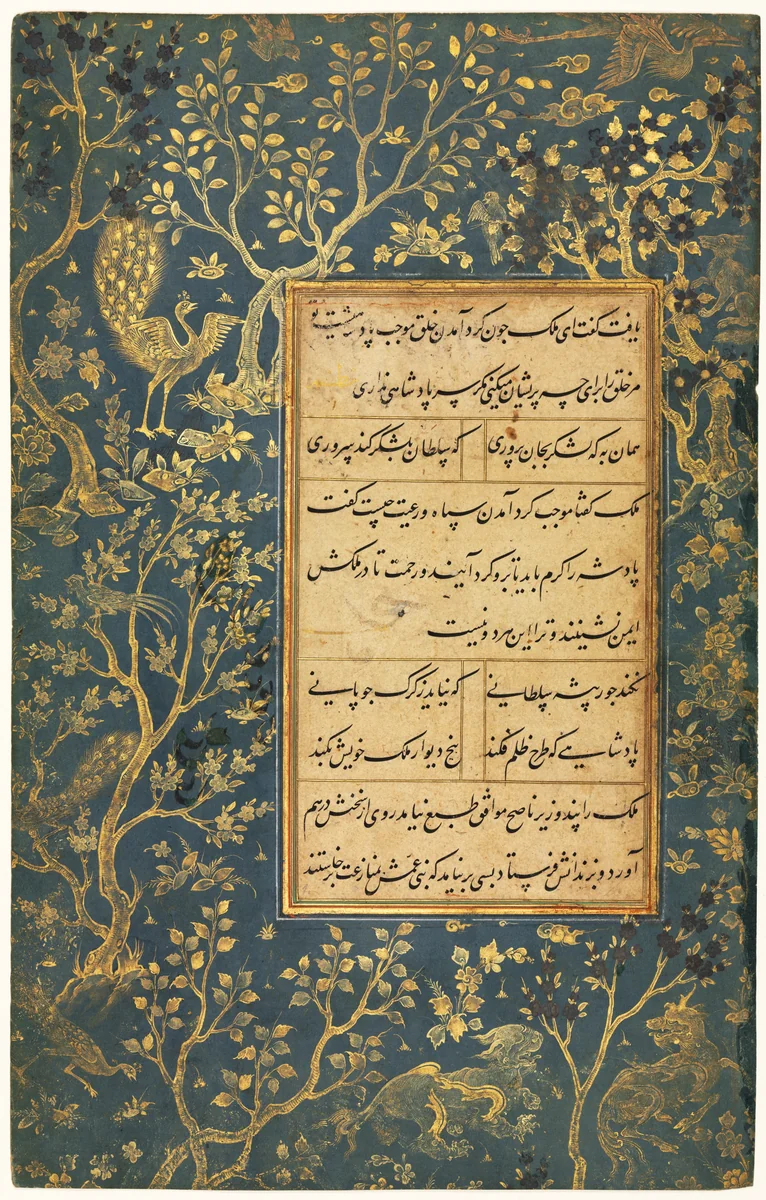 یافت گفت ای ملک چون گرد آمدن خلق موجب پادشهیست تو
مر خلق را برای چه پریشان میکنی مگر سر پادشاهی نداری
همان به که لشکر بجان پروری که سلطان بلشکر کند سروری
ملک گفتا موجب گرد آمدن سپاه و رعیت چیست گفت
پادشه را کرم باید تا برو گرد آیند و رحمت تا در ملکش
ایمن نشینند و ترا این هر دو نیست
نکند جور پیشه سلطانی که نیاید ز گرگ چوپانی
پادشاهی که طرح ظلم فکند بیخ دیوار ملک خویش بکند
ملک را پند وزیر ناصح موافق طبع نیامد روی از سخنش درهم
آورد و بزندانش فرستاد بسی برنیامد که بنی عمش بمنازعت برخاستند